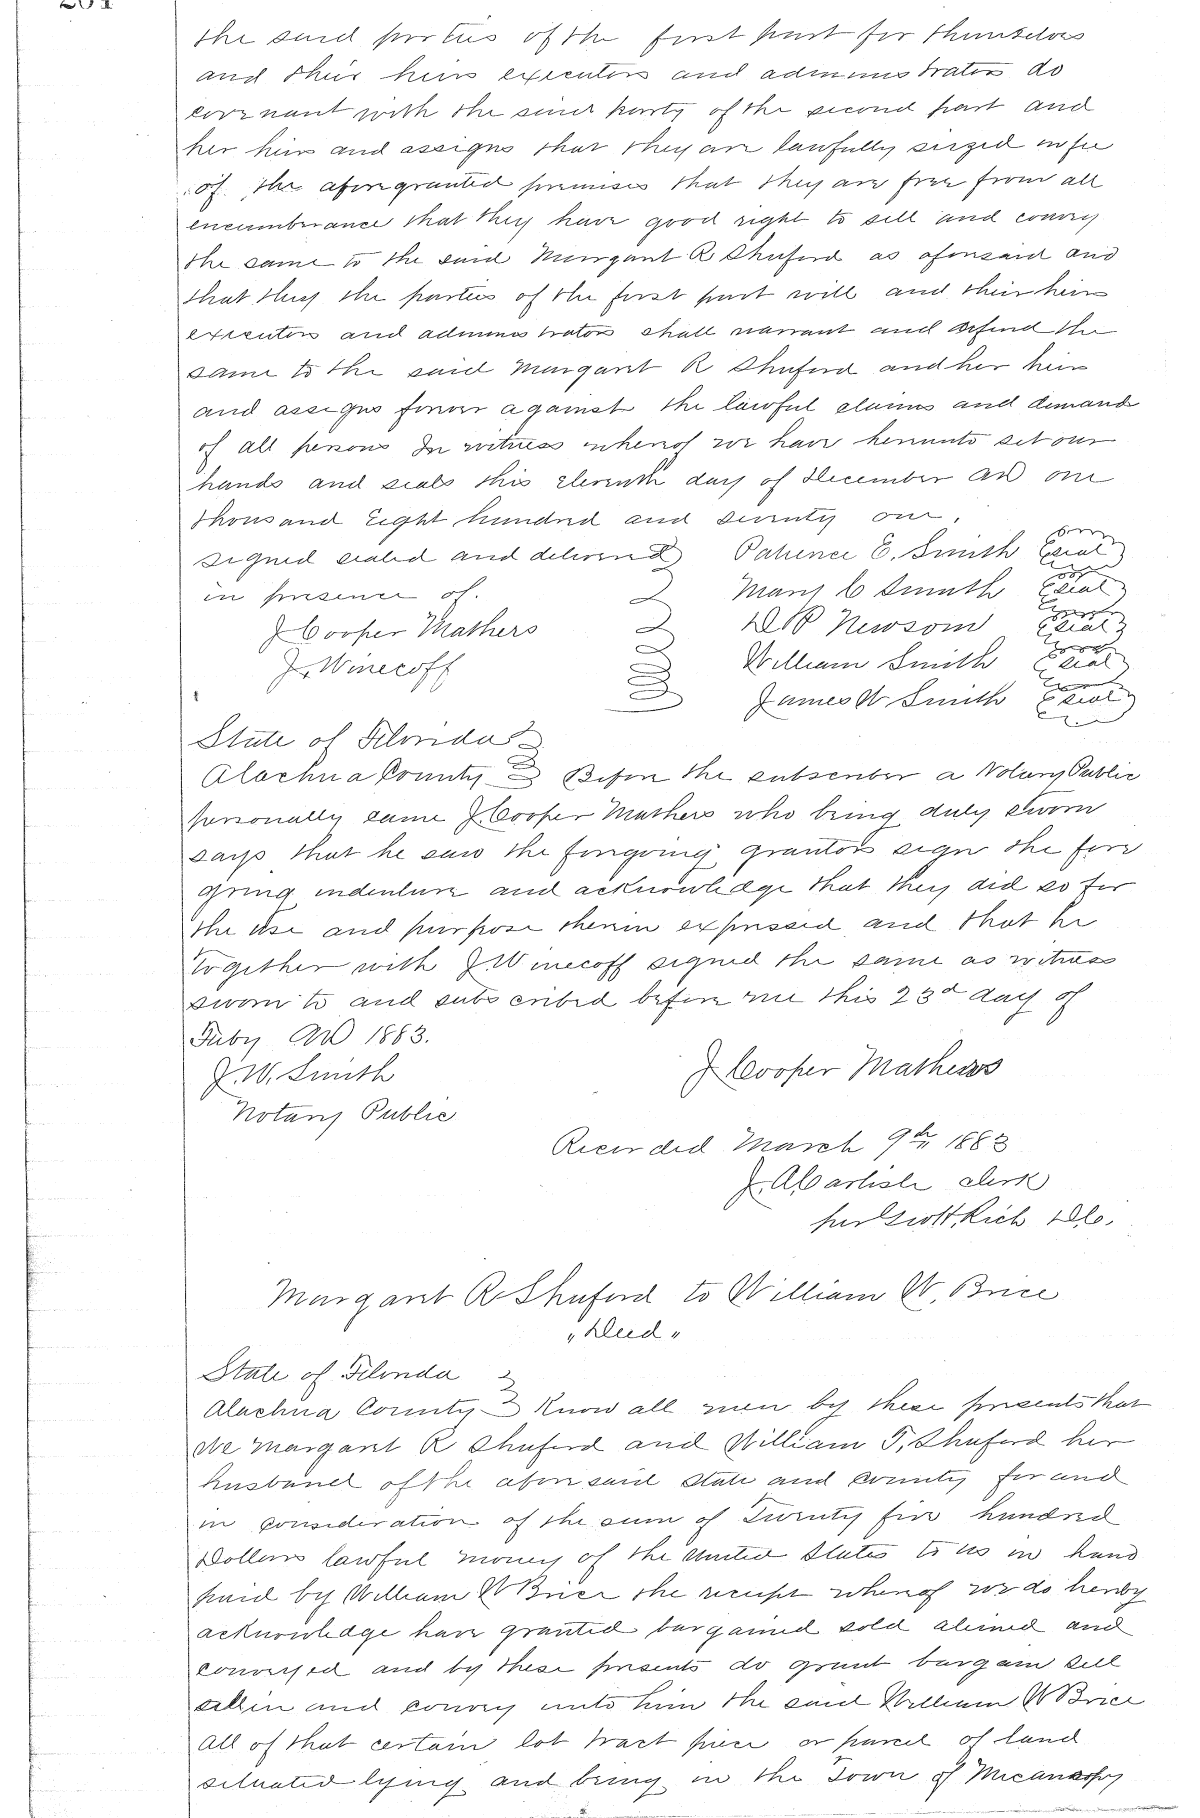 the said parties of the first part for themselves
and their heirs executors and administrators do
covenant with the said party of the second part and
her heirs and assigns that they are lawfully seized in fee
of the aforegranted premises that they are free from all
encumberance that they have good right to sell and convey
the same to the said Margaret R Shuford as aforesaid and
that they the parties of the first part will and their heirs
executors and administrators shall warrant and defend the
same to the said Margaret R Shuford and her heirs
and assigns forever against the lawful claims and demands
of all persons In witness whereof we have hereunto set our
hands and seals this eleventh day of December AD one
thousand Eight hundred and seventy one.
signed sealed and delivered Patience E. Smith seal
in presence of. Mary C Smith seal
J Cooper Mathers D P Newsom seal
J. Winecoff William Smith seal
James W Smith seal
State of Florida
Alachua County Before the subscriber a Notary Public
personally came J. Cooper Mathers who being duly sworn
says that he saw the foregoing grantors sign the fore
going indenture and acknowledge that they did so for
the use and purpose therein expressed and that he
together with J. Winecoff signed the same as witness
sworn to and subscribed before me this 23d day of
Feby AD 1883.
J. W. Smith J Cooper Mathers
Notary Public
Recorded March 9th 1883
J. A. Carlisle clerk
per Scott Rich D.C.
Margaret R Shuford to William W. Brice
"Deed"
State of Florida
Alachua County Know all men by these presents that
We Margaret R Shuford and William T. Shuford her
husband of the aforesaid State and County for and
in consideration of the sum of Twenty five hundred
Dollars lawful money of the United States to us in hand
paid by William W Brice the receipt whereof we do hereby
acknowledge have granted bargained sold aliened and
conveyed and by these presents do grant bargain sell
alien and convey unto him the said William W Brice
all of that certain lot tract piece or parcel of land
situated lying and being in the Town of Micanopy